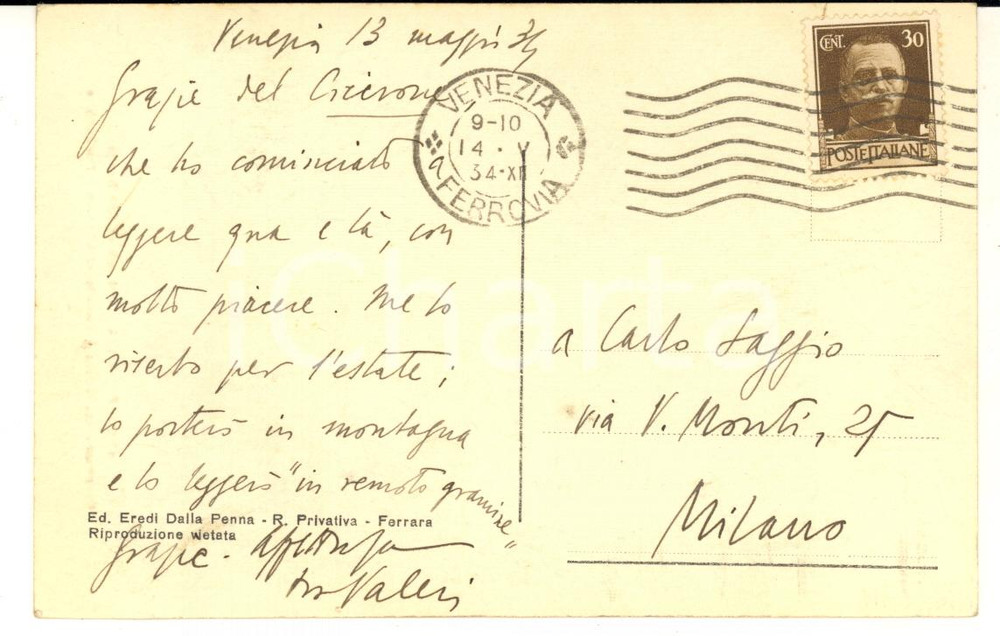 Venezia 13 maggio 34
Grazie del Cicerone,
che ho cominciato a
leggere qua e là, con
molto piacere. Me lo
riserbo per l'estate;
lo porterò in montagna
e lo leggerò "in remoto gramine"
Grazie.
Valeri
Ed. Eredi Dalla Penna - R. Privativa - Ferrara
Riproduzione vietata
VENEZIA
9-10
14 · V
34-XII
FERROVIA
CENT. 30
POSTE ITALIANE
a Carlo Saggio
via V. Monti, 25
Milano
iCharta